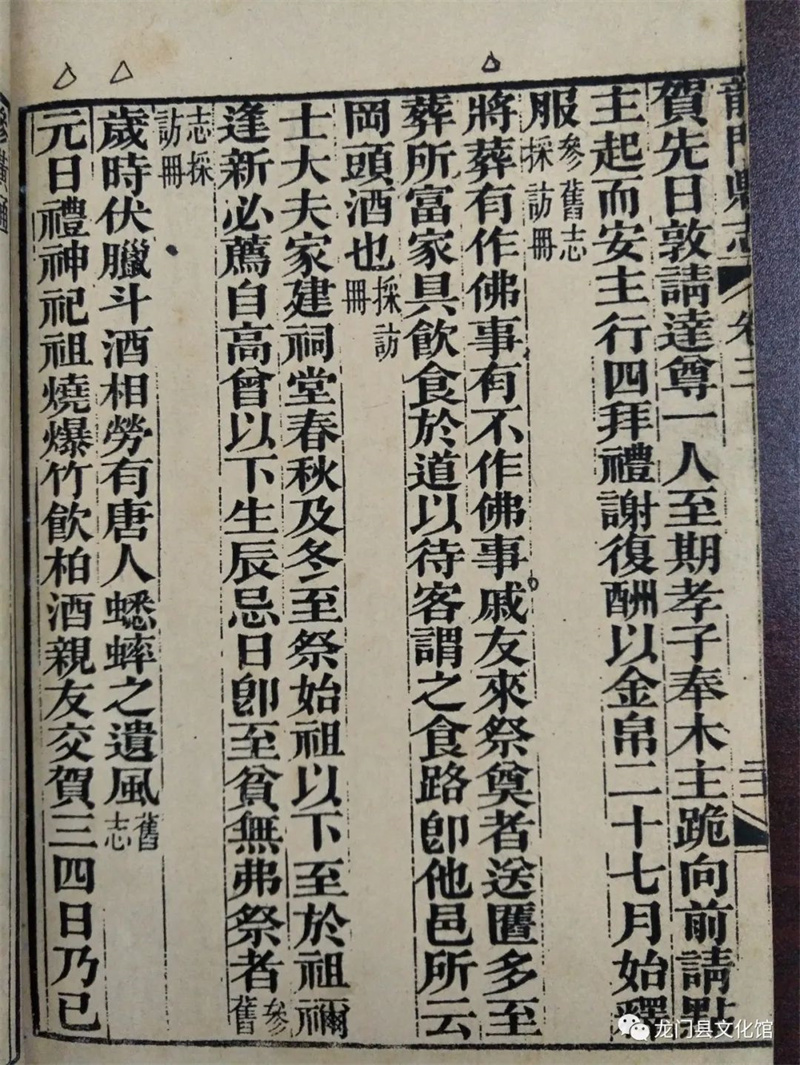 龍門縣志 卷三
賀先日敦請達尊一人至期孝子奉木主跪向前請點
主起而安主行四拜禮謝復酬以金帛二十七月始釋
服參舊志採訪冊
將葬有作佛事有不作佛事戚友來祭奠者送匶多至
葬所富家具飲食於道以待客謂之食路卽他邑所云
岡頭酒也採訪冊
士大夫家建祠堂春秋及冬至祭始祖以下至於祖禰
逢新必薦自高曾以下生辰忌日卽至貧無弗祭者參舊
志採訪冊
歲時伏臘斗酒相勞有唐人蟋蟀之遺風舊志
元日禮神祀祖燒爆竹飲柏酒親友交賀三四日乃已
龙门县文化馆